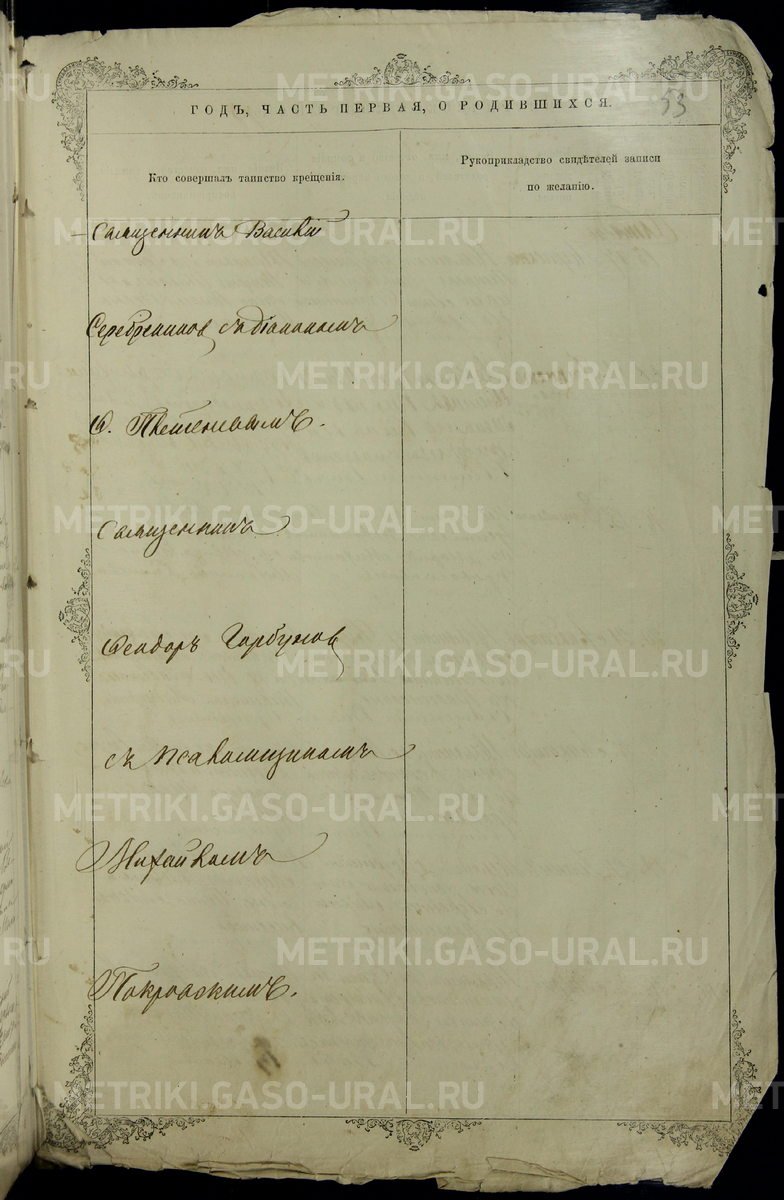 ГОДЪ, ЧАСТЬ ПЕРВАЯ, О РОДИВШИХСЯ.
53
Кто совершалъ таинство крещенія.
Рукоприкладство свидѣтелей записи
по желанію.
Священникъ Василій
Серебренниковъ съ діакономъ
Ѳ.
Священникъ
Ѳеодоръ Горбуновъ
съ псаломщикомъ
Михайломъ
Покровскимъ.
METRIKI.GASO-URAL.RU